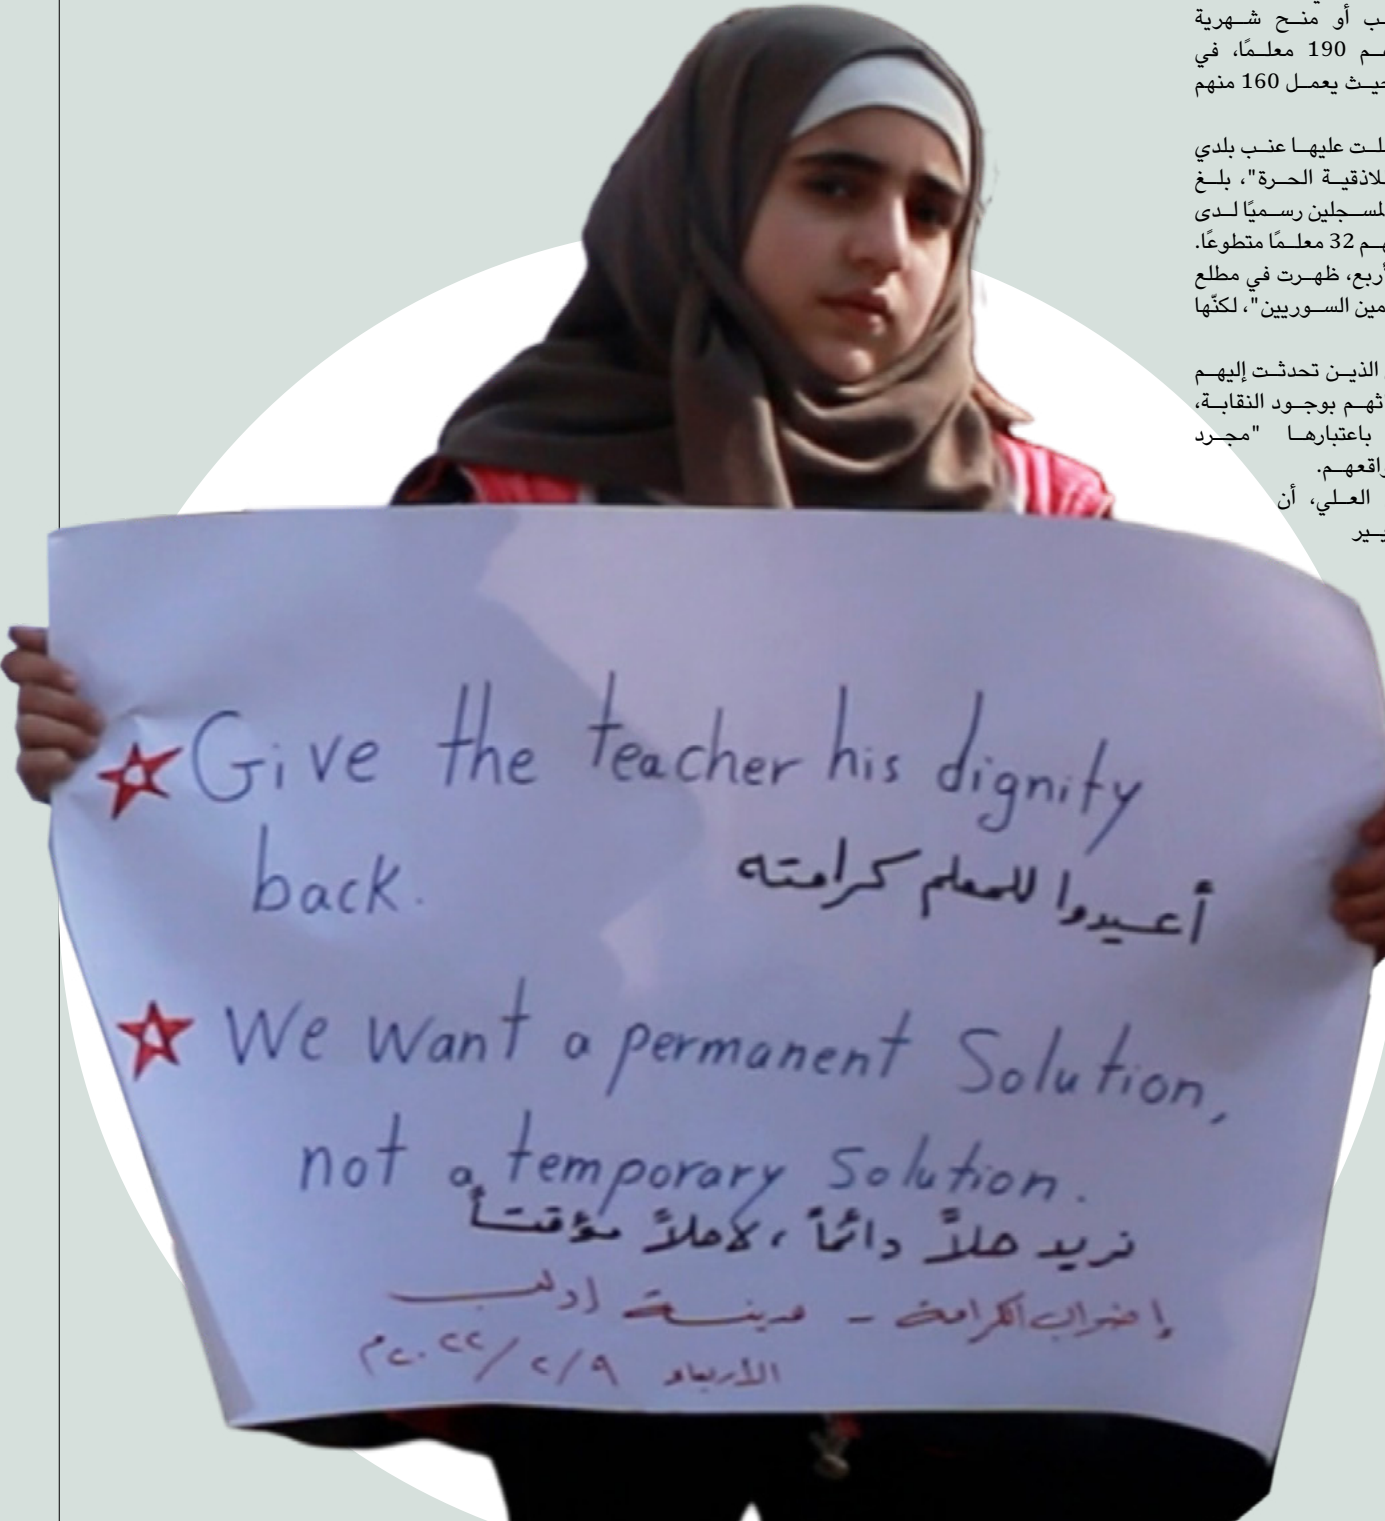 ـب أو منح شهرية
ـم 190 معلمًا، في
حيث يعمل 160 منهم
ـلت عليها عنب بلدي
ـلاذقية الحرة"، بلغ
لمسجلين رسميًا لدى
ـهم 32 معلمًا متطوعًا.
أربع، ظهرت في مطلع
ـمين السوريين"، لكنّها
الذين تحدثت إليهم
ـثهم بوجود النقابة،
باعتبارها "مجرد
ـواقعهم.
العلي، أن
ـيير
Give the teacher his dignity
back.
أعيدوا للمعلم كرامته
We want a permanent Solution,
not a temporary Solution.
نريد حلاً دائماً، لا حلاً مؤقتاً
إضراب الكرامة - مدينة إدلب
الأربعاء ٢٠٢٢/٢/٩م